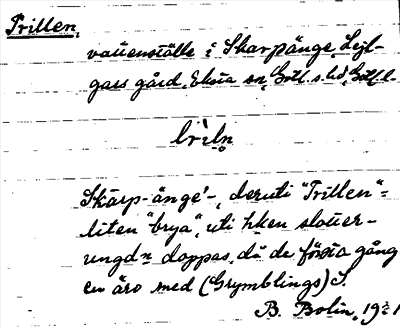 Trillen,
vattenställe i Skarpänge, Lejl-
gars gård, Eksta sn, Gotl. s. hd, Gotl. l.
trìln̥
Skarp-änge'-, deruti "Trillen" =
liten "brya", uti hken slåtter-
ungdn doppas, då de första gång
en äro med (Grymblings) S.
B. Bolin, 19